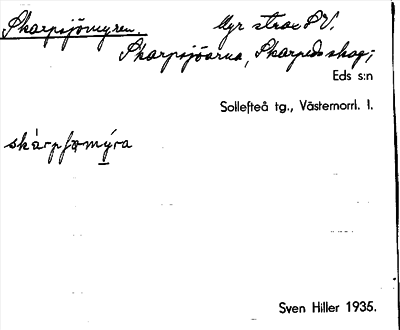 Skarpsjömyren. Myr strax S V.
Skarpsjöarna, Skarpeds skog;
Eds s:n
Sollefteå tg., Västernorrl. l.
skàrpʃœmýra
Sven Hiller 1935.